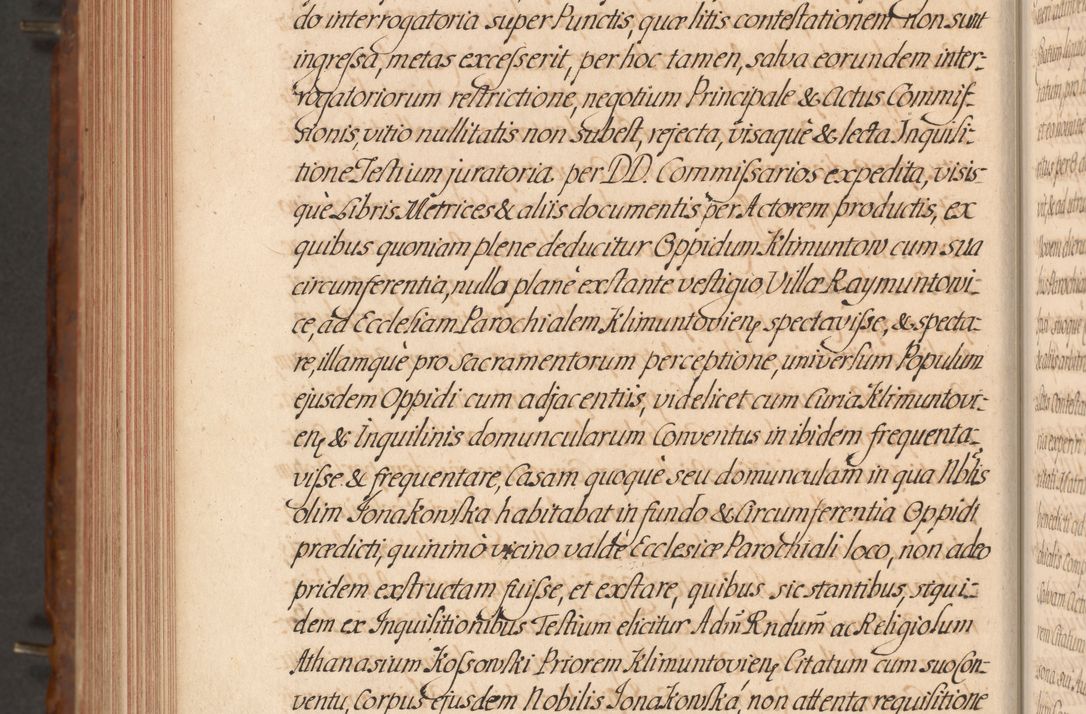 do interrogatoria super Punctis, quæ litis contestationem non sunt
ingressa, metas excesserit, per hoc tamen, salva eorundem inter-
rogatoriorum restrictione, negotium Principale & Actus Commis-
sionis, vitio nullitatis non subest, rejecta, visaquè & lecta Inquisi-
tione Testium juratoria per DD. Commissarios expedita, visis-
què Libris Metrices & aliis documentis per Actorem productis, ex
quibus quoniam plene deducitur Oppidum Klimuntow cum sua
circumferentia, nulla planè exstante vestigio Villæ Raymuntowi-
ce, ad Ecclesiam Parochialem Klimuntovieñ spectavisse, & specta-
re, illamquè pro Sacramentorum perceptione, universum Populum
ejusdem Oppidi cum adjacentiis, videlicet cum Curia Klimuntovi-
eñ & Inquilinis domuncularum Conventus inibidem frequenta-
visse & frequentare, Casam quoquè seu domunculam in qua Nblis
olim Jonakowska habitabat in fundo & Circumferentia Oppidi
prædicti, quinimò vicino valdè Ecclesiæ Parochiali loco, non adeo
pridem exstructam fuisse, et exstare, quibus sic stantibus, siqui-
dem ex Inquisitionibus Testium elicitur Adm̃ Rndum̃ ac Religiosum
Athanasium Kossowski Priorem Klimuntovieñ Citatum cum suo Con-
ventu, Corpus ejusdem Nobilis Jonakowska, non attenta requisitione